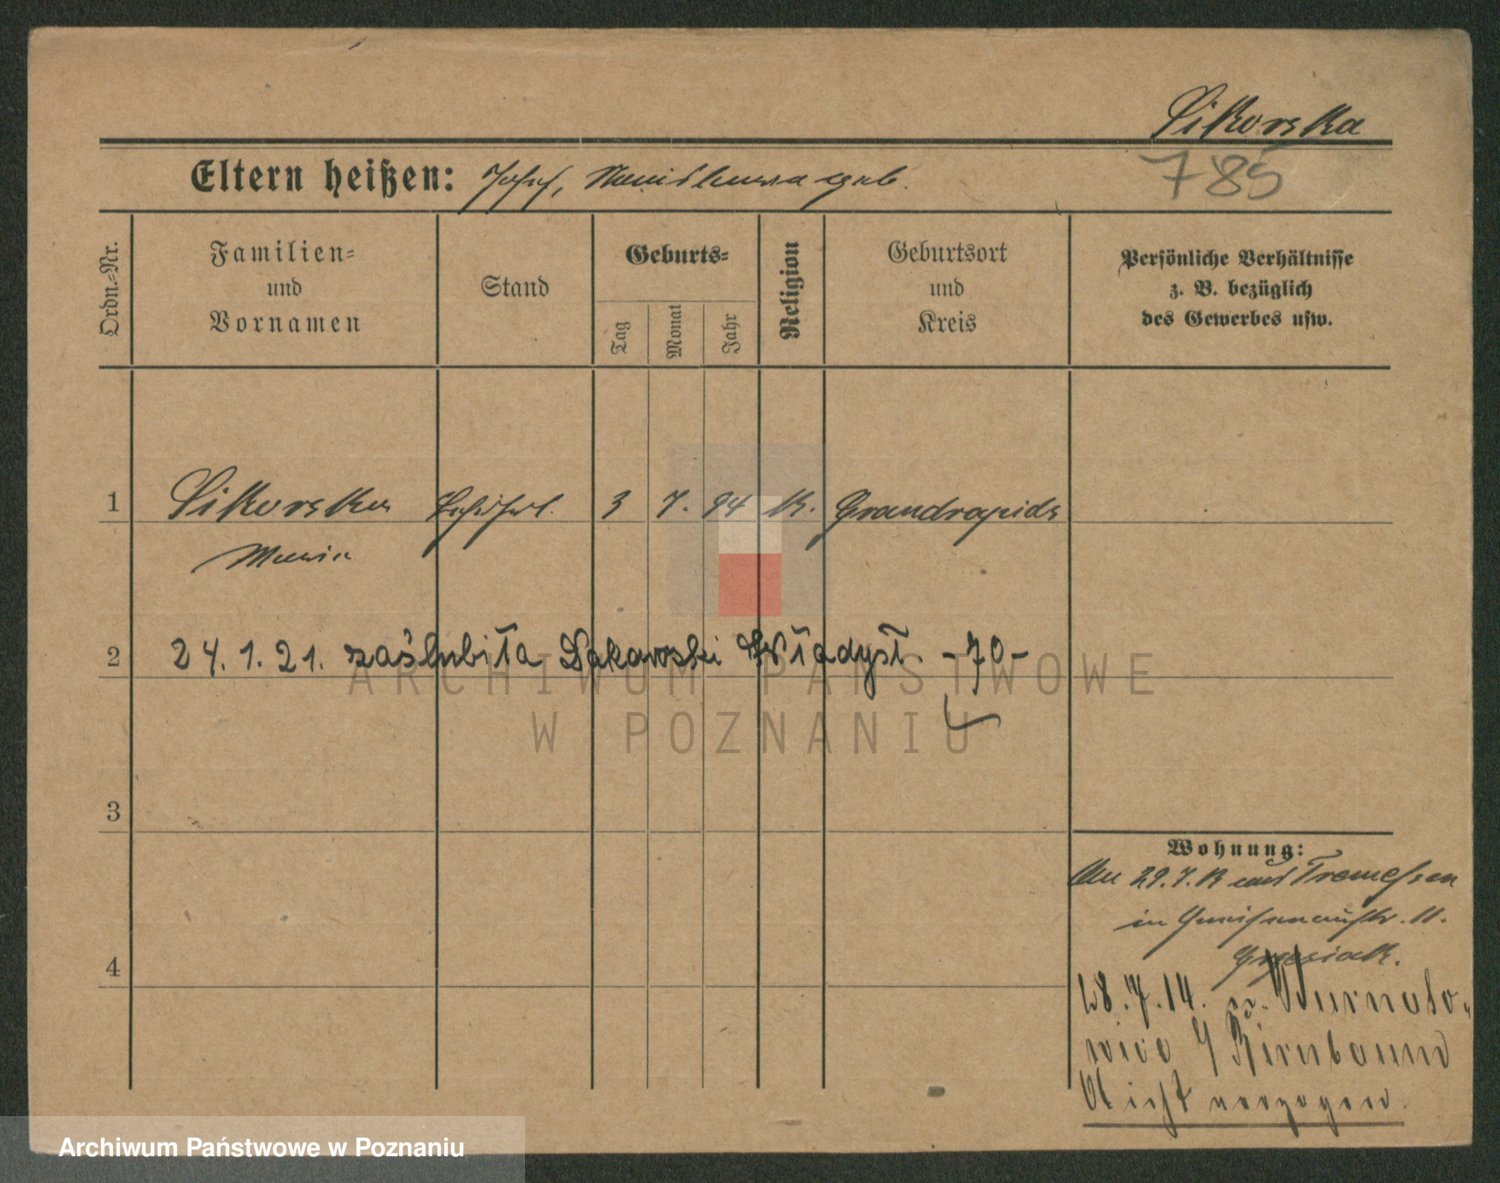 Sikorska
785
Eltern heißen: Josef,
Ordn.-Nr.
Familien-
und
Vornamen
Stand
Geburts-
Tag
Monat
Jahr
Religion
Geburtsort
und
Kreis
Persönliche Verhältnisse
z. B. bezüglich
des Gewerbes usw.
1 Sikorska 3 7. 94 K. Grandrapids
Maria
2 24.1.21. zaślubiła Władysł. -70-
3
4
Wohnung:
Am 29.7.13 aus Tremessen
in Gneisenaustr. 11.
Grzesiak.
28.7.14. n.
Birnbaum
Nicht verzogen.
ARCHIWUM PAŃSTWOWE
W POZNANIU
Archiwum Państwowe w Poznaniu